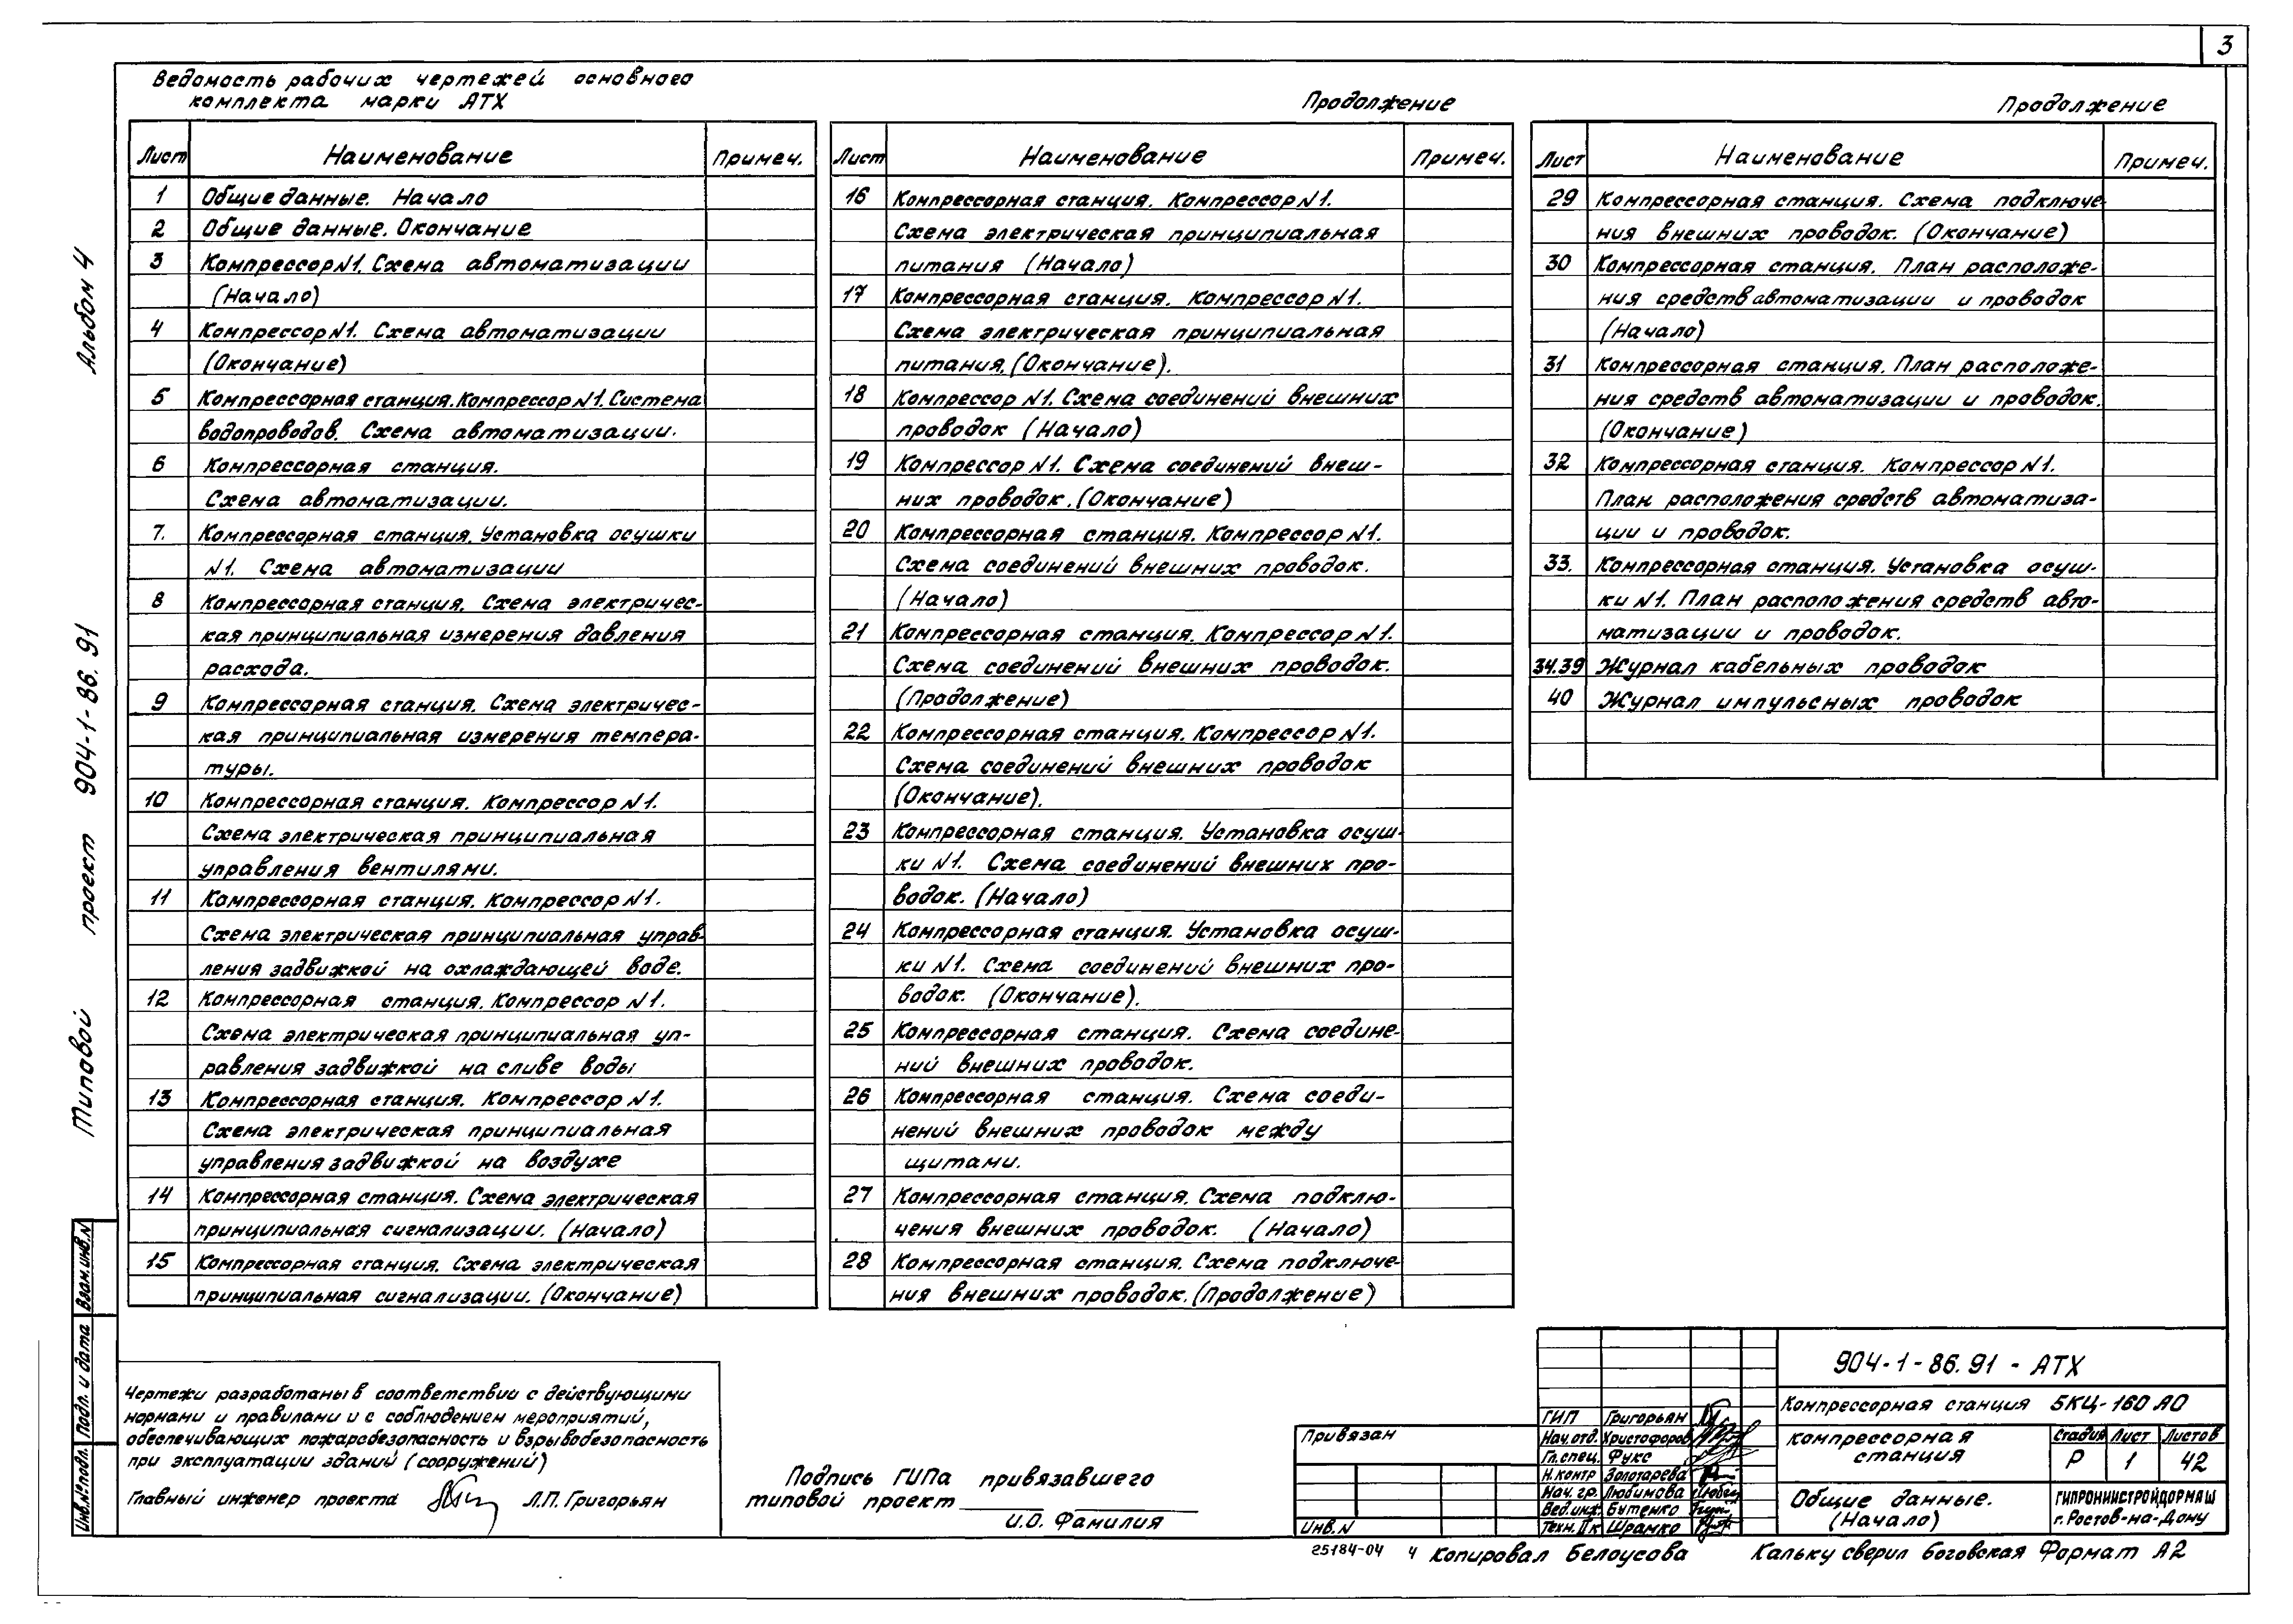 3
Ведомость рабочих чертежей основного
комплекта марки АТХ
Лист Наименование Примеч.
1 Общие данные. Начало
2 Общие данные. Окончание
3 Компрессор N1. Схема автоматизации
(Начало)
4 Компрессор N1. Схема автоматизации
(Окончание)
5 Компрессорная станция. Компрессор N1. Система
водопроводов. Схема автоматизации.
6 Компрессорная станция.
Схема автоматизации.
7. Компрессорная станция. Установка осушки
N1. Схема автоматизации
8 Компрессорная станция. Схема электричес-
кая принципиальная измерения давления
расхода.
9 Компрессорная станция. Схема электричес-
кая принципиальная измерения темпера-
туры.
10 Компрессорная станция. Компрессор N1.
Схема электрическая принципиальная
управления вентилями.
11 Компрессорная станция. Компрессор N1.
Схема электрическая принципиальная управ-
ления задвижкой на охлаждающей воде.
12 Компрессорная станция. Компрессор N1.
Схема электрическая принципиальная уп-
равления задвижкой на сливе воды
13 Компрессорная станция. Компрессор N1.
Схема электрическая принципиальная
управления задвижкой на воздухе
14 Компрессорная станция. Схема электрическая
принципиальная сигнализации. (Начало)
15 Компрессорная станция. Схема электрическая
принципиальная сигнализации. (Окончание)
Продолжение
Лист Наименование Примеч.
16 Компрессорная станция. Компрессор N1.
Схема электрическая принципиальная
питания (Начало)
17 Компрессорная станция. Компрессор N1.
Схема электрическая принципиальная
питания. (Окончание).
18 Компрессор N1. Схема соединений внешних
проводок (Начало)
19 Компрессор N1. Схема соединений внеш-
них проводок. (Окончание)
20 Компрессорная станция. Компрессор N1.
Схема соединений внешних проводок.
(Начало)
21 Компрессорная станция. Компрессор N1.
Схема соединений внешних проводок.
(Продолжение)
22 Компрессорная станция. Компрессор N1.
Схема соединений внешних проводок
(Окончание).
23 Компрессорная станция. Установка осуш-
ки N1. Схема соединений внешних про-
водок. (Начало)
24 Компрессорная станция. Установка осуш-
ки N1. Схема соединений внешних про-
водок. (Окончание).
25 Компрессорная станция. Схема соедине-
ний внешних проводок.
26 Компрессорная станция. Схема соеди-
нений внешних проводок между
щитами.
27 Компрессорная станция. Схема подклю-
чения внешних проводок. (Начало)
28 Компрессорная станция. Схема подключе-
ния внешних проводок. (Продолжение)
Продолжение
Лист Наименование Примеч.
29 Компрессорная станция. Схема подключе-
ния внешних проводок. (Окончание)
30 Компрессорная станция. План расположе-
ния средств автоматизации и проводок
(Начало)
31 Компрессорная станция. План расположе-
ния средств автоматизации и проводок.
(Окончание)
32 Компрессорная станция. Компрессор N1.
План расположения средств автоматиза-
ции и проводок.
33. Компрессорная станция. Установка осуш-
ки N1. План расположения средств авто-
матизации и проводок.
34.39 Журнал кабельных проводок
40 Журнал импульсных проводок
Типовой проект 904-1-86.91 Альбом 4
Инв.№подл. Подп. и дата Взам.инв.N
Чертежи разработаны в соответствии с действующими
нормами и правилами и с соблюдением мероприятий,
обеспечивающих пожаробезопасность и взрывобезопасность
при эксплуатации зданий (сооружений)
Главный инженер проекта Л.П. Григорьян
Подпись ГИПа привязавшего
типовой проект
И.О. Фамилия
Привязан
Инв. N
ГИП Григорьян
Нач.отд. Христофоров
Гл.спец. Фукс
Н.контр Золотарева
Нач. гр. Любимова
Вед.инж. Бутенко
Техн. IIк Шрамко
904-1-86.91 - АТХ
Компрессорная станция 5КЦ-160 АО
компрессорная
станция
Стадия Лист Листов
Р 1 42
Общие данные.
(Начало)
ГИПРОНИИСТРОЙДОРМАШ
г. Ростов-на-Дону
25184-04 4 Копировал Белоусова Кальку сверил Боговская Формат А2